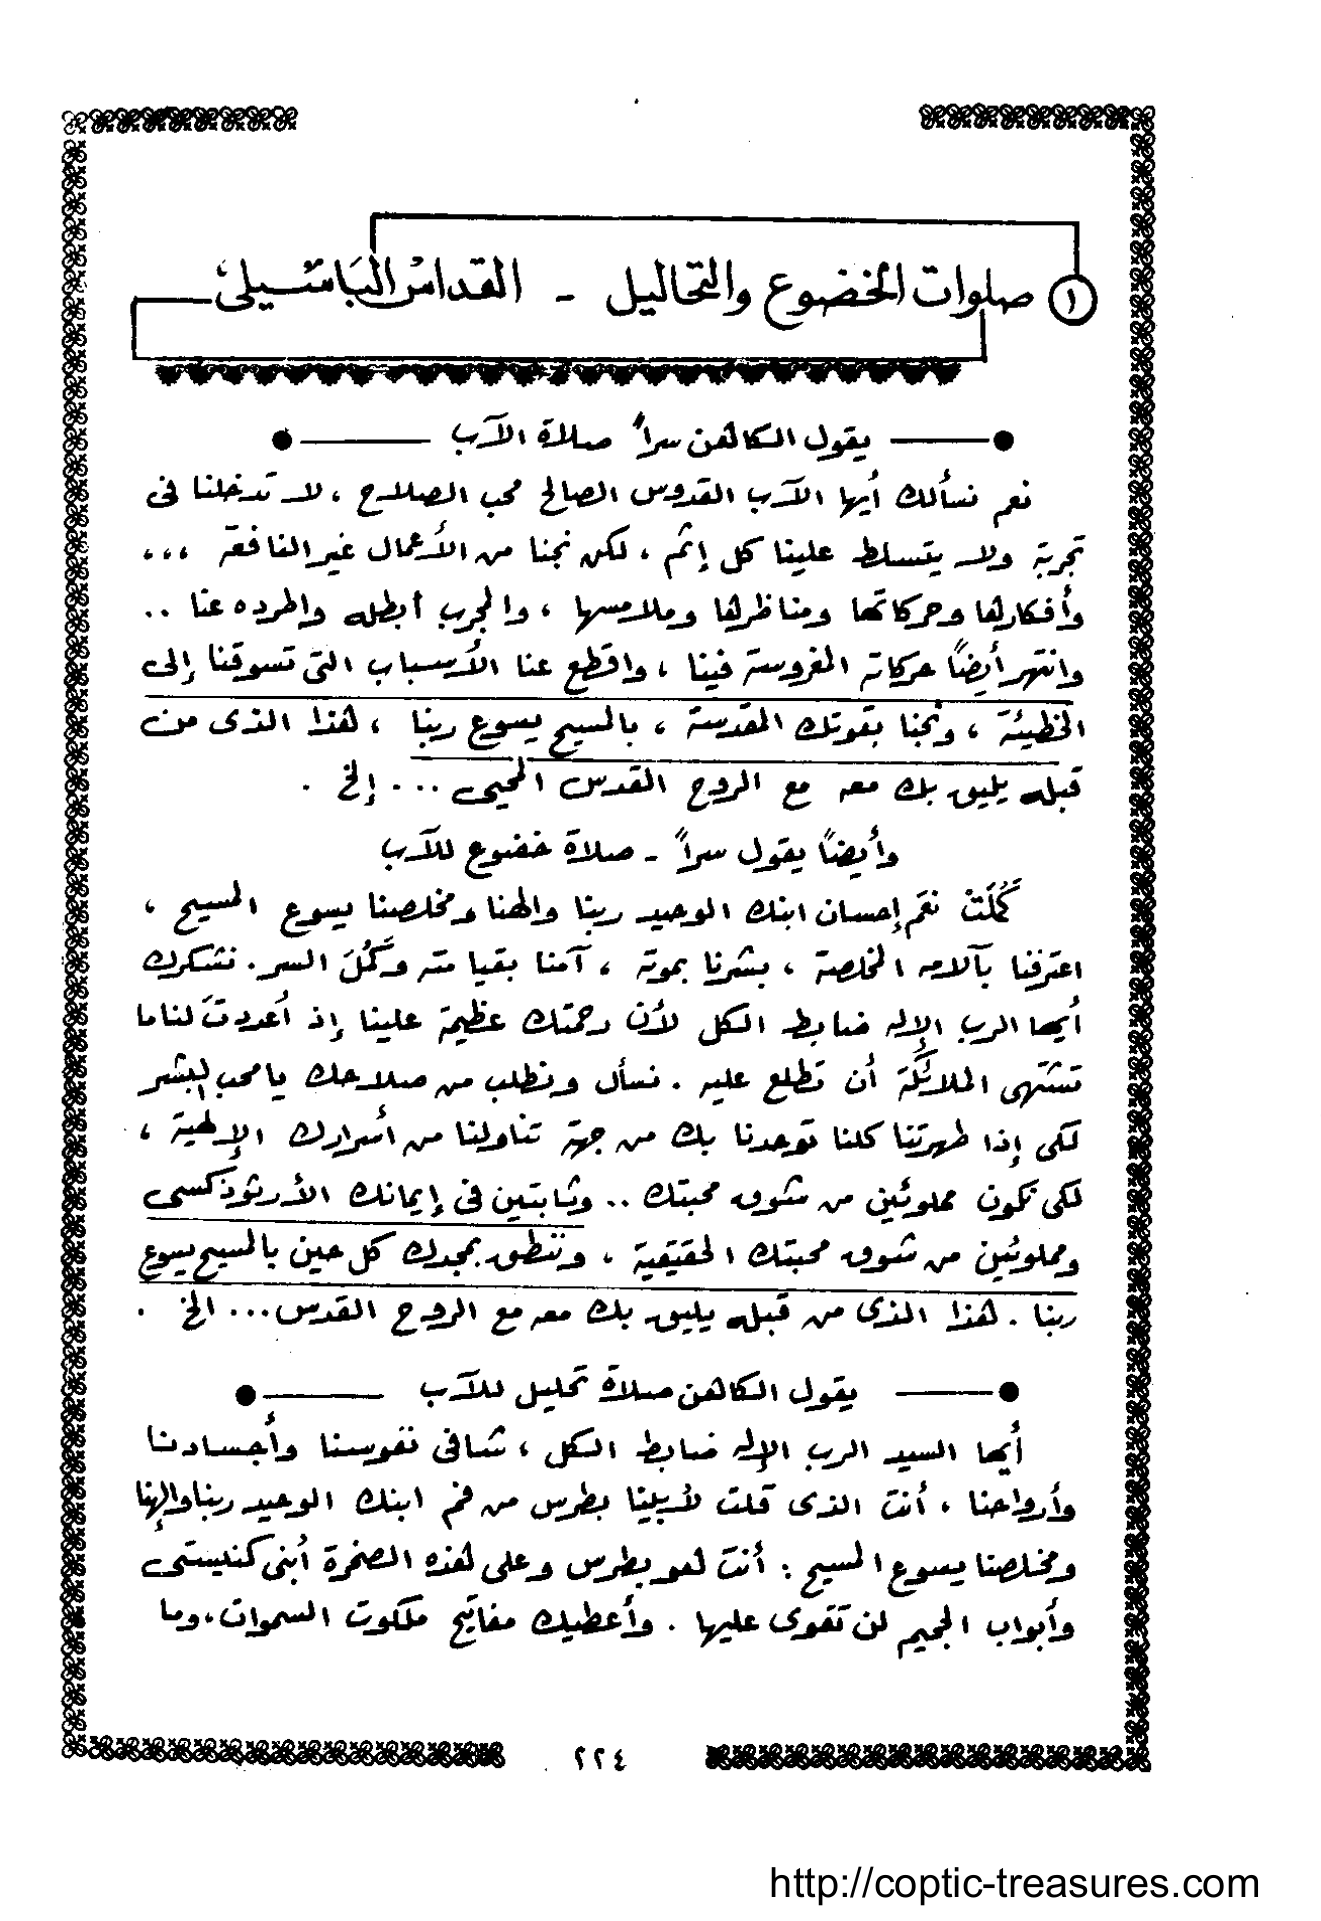 ١ صلوات الخضوع والتحاليل - القداس الباسيلى
يقول الكاهن سراً صلاة الآب
نعم نسألك أيها الآب القدوس الصالح محب الصلاح ، لا تدخلنا فى
تجربة ولا يتسلط علينا كل إثم ، لكن نجنا من الأعمال غير النافعة ،،،
وأفكارها وحركاتها ومناظرها وملامسها ، والمجرب أبطله واطرده عنا ..
وانتهر أيضاً حركاته المغروسة فينا ، واقطع عنا الأسباب التى تسوقنا إلى
الخطيئة ، ونجنا بقوتك المقدسة ، بالمسيح يسوع ربنا ، هذا الذى من
قبله يليق بك معه مع الروح القدس المحيى ... إلخ .
وأيضاً يقول سراً - صلاة خضوع للآب
كُملَتْ نعَم إحسان ابنك الوحيد ربنا والهنا ومخلصنا يسوع المسيح ،
اعترفنا بآلامه المخلصة ، بشرنا بموته ، آمنا بقيامته وكَمُلَ السر . نشكرك
أيها الرب الإله ضابط الكل لأن رحمتك عظيمة علينا إذ أعددتَ لنا ما
تشتهى الملائكة أن تطلع عليه . نسأل ونطلب من صلاحك يا محب البشر
لكى إذا طهرتنا كلنا توحدنا بك من جهة تناولنا من أسرارك الإلهية ،
لكى نكون مملوئين من شوق محبتك .. وثابتين فى إيمانك الأرثوذكسى
ومملوئين من شوق محبتك الحقيقية ، وننطق بمجدك كل حين بالمسيح يسوع
ربنا . هذا الذى من قبله يليق بك معه مع الروح القدس ... الخ .
يقول الكاهن صلاة تحليل للآب
أيها السيد الرب الإله ضابط الكل ، شافى نفوسنا وأجسادنا
وأرواحنا ، أنت الذى قلت لأبينا بطرس من فم ابنك الوحيد ربنا وإلهنا
ومخلصنا يسوع المسيح : أنت هو بطرس وعلى هذه الصخرة أبنى كنيستى
وأبواب الجحيم لن تقوى عليها . وأعطيك مفاتيح ملكوت السموات ، وما
٢٢٤
http://coptic-treasures.com